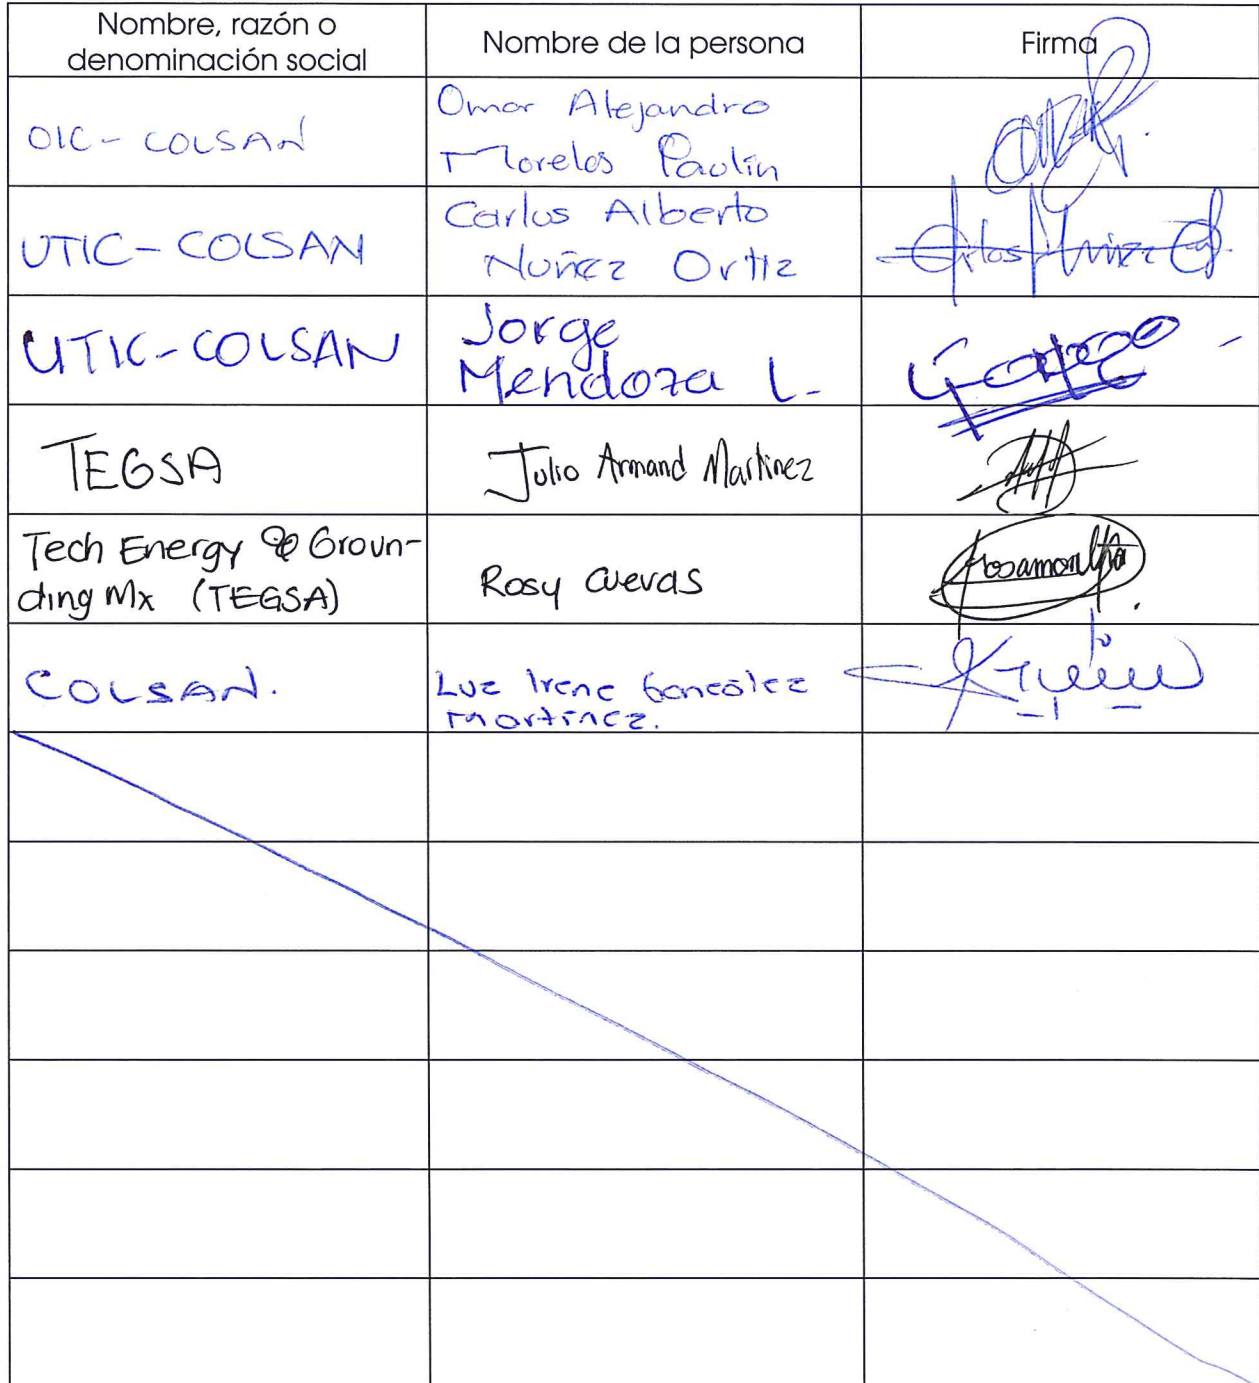 Nombre, razón o
denominación social
Nombre de la persona
Firma
OIC - COLSAN
Omar Alejandro
Morelos Paulín
UTIC - COLSAN
Carlos Alberto
Nuñez Ortiz
UTIC - COLSAN
Jorge
Mendoza L.
TEGSA
Julio Armand Martinez
Tech Energy & Groun-
ding Mx (TEGSA)
Rosy Cuevas
COLSAN.
Luz Irene González
Martínez.